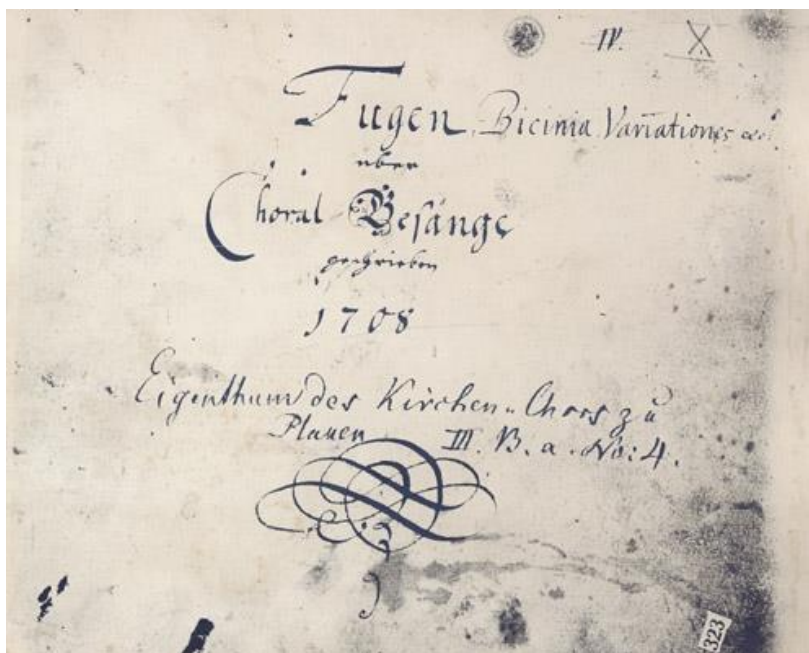 IV. X
Fugen, Bicinia Variationes
über
Choral Gesänge
geschrieben
1708
Eigenthum des Kirchen-Chors zu
Plauen III. B. a. No: 4.
323